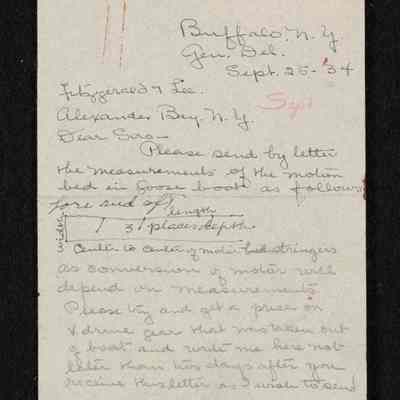 Buffalo. N.Y
Gen. Del.
Sept. 25-34
Sept
Fitzgerald & Lee.
Alexander Bay. N.Y.
Dear Sirs-
Please send by letter
the measurements of the motor
bed in Goose boat as follows
fore and aft
length
width
3 places depth
Center to center of motor bed stringers
as conversion of motor will
depend on measurements
Please try and get a price on
V drive gear that was taken out
of boat and write me here not
later than two days after you
receive this letter as I wish to send